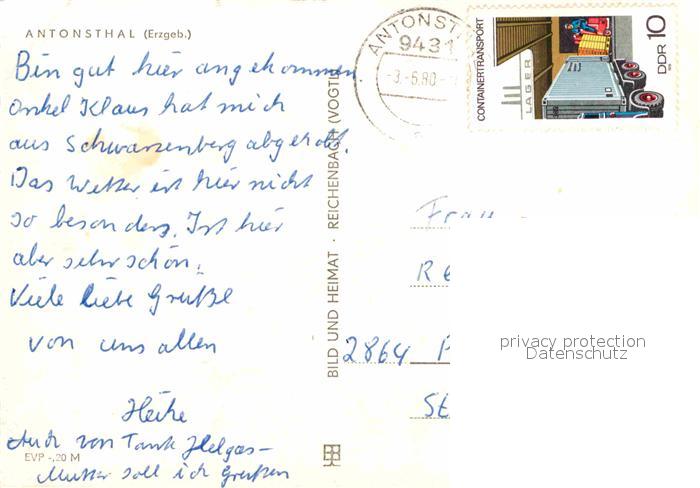 ANTONSTHAL (Erzgeb.)
Bin gut hier angekommen.
Onkel Klaus hat mich
aus Schwarzenberg abgeholt.
Das Wetter ist hier nicht
so besonders. Ist hier
aber sehr schön.
Viele liebe Grüße
von uns allen
Heike
Auch von Tante Helgas-
Mutter soll ich grüßen
EVP -,20 M
BILD UND HEIMAT · REICHENBACH (VOGTL
ANTONSTH
9431
-3.-6.80-
CONTAINERTRANSPORT
LAGER
DDR 10
Frau
Re
2864 P
St
privacy protection
Datenschutz